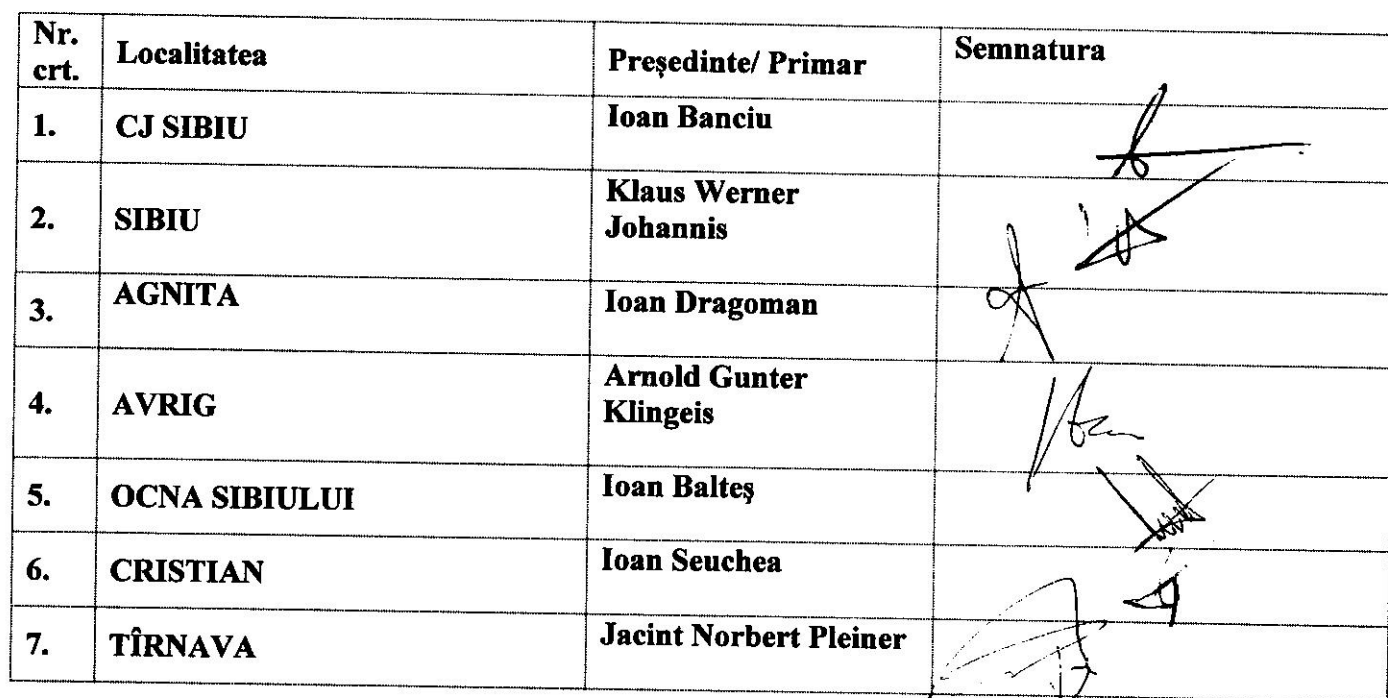 Nr. crt. Localitatea Președinte/ Primar Semnatura
1. CJ SIBIU Ioan Banciu
2. SIBIU Klaus Werner Johannis
3. AGNITA Ioan Dragoman
4. AVRIG Arnold Gunter Klingeis
5. OCNA SIBIULUI Ioan Balteş
6. CRISTIAN Ioan Seuchea
7. TÎRNAVA Jacint Norbert Pleiner